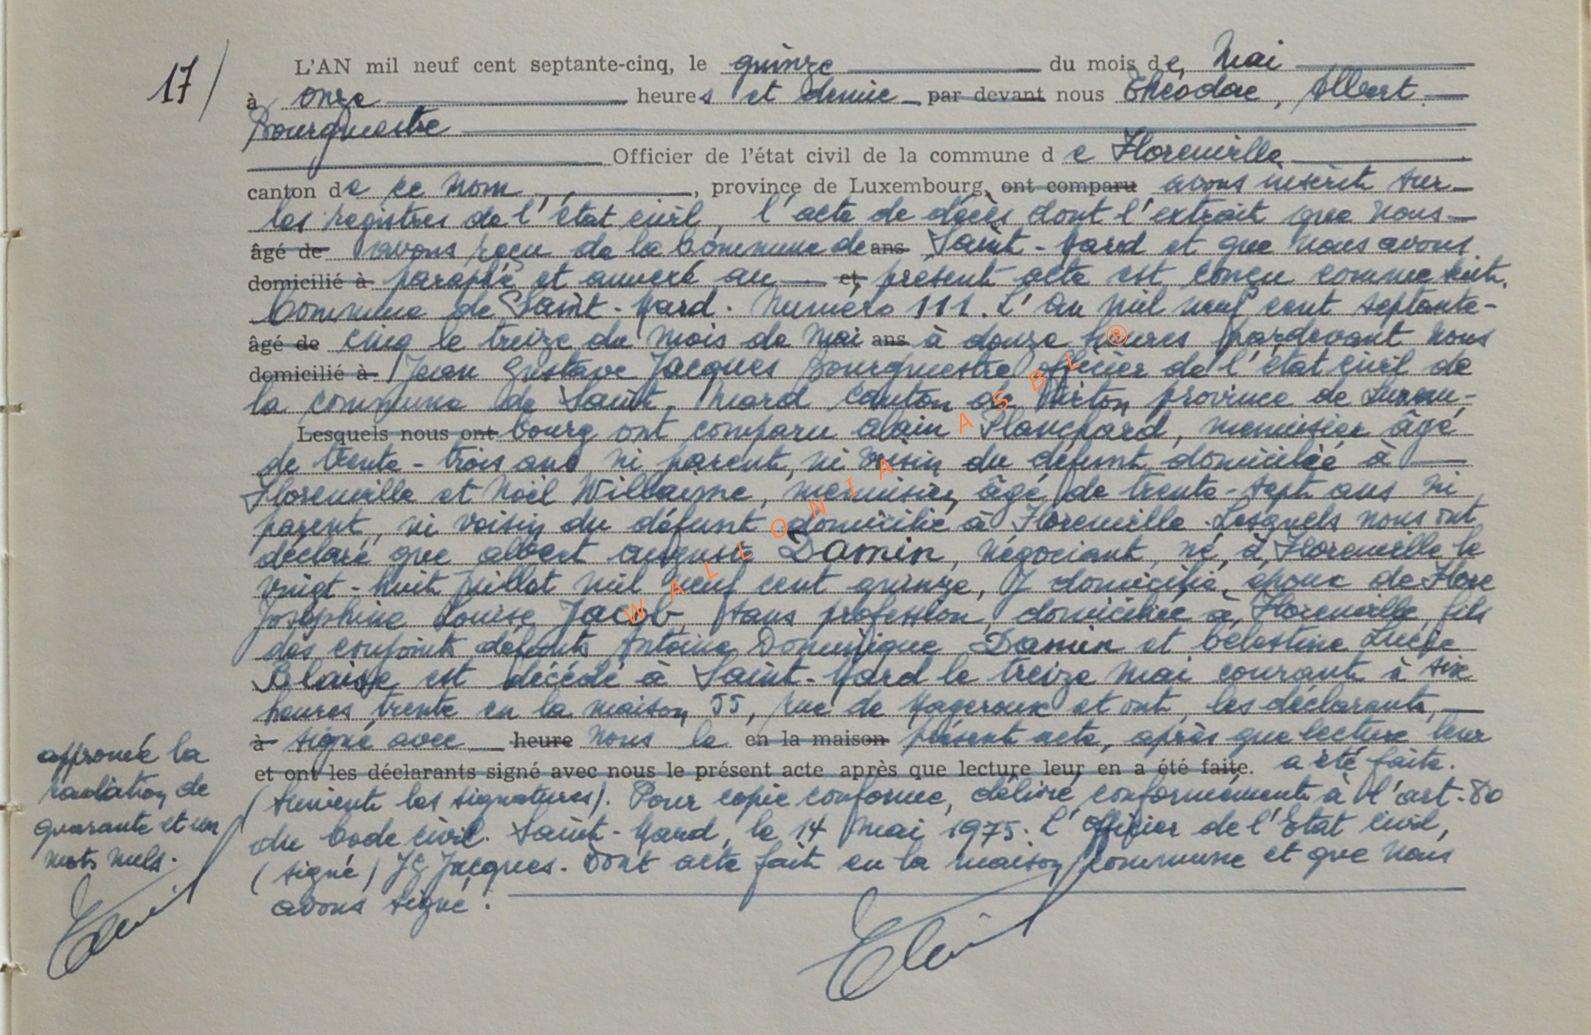 17/
L'AN mil neuf cent septante-cinq, le quinze du mois de, Mai
à onze heures et demie par devant nous Théodore, Albert
Bourgmestre
Officier de l'état civil de la commune de Florenville
canton de ce nom, province de Luxembourg, ont comparu avons inscrit sur
les registres de l'état civil, l'acte de décès dont l'extrait que nous
âgé de avons reçu de la Commune de ans Saint-Mard et que nous avons
domicilié à paraphé et annexé au et, présent acte est conçu comme suit.
Commune de Saint-Mard. Numéro 111. L'an mil neuf cent septante-
âgé de cinq le treize du mois de Mai ans à douze heures pardevant nous
domicilié à Jean Gustave Jacques Bourgmestre officier de l'état civil de
la commune de Saint, Mard canton de Virton province de Luxem-
Lesquels nous ont bourg ont comparu Alain Planchard, menuisier âgé
de trente-trois ans, ni parent, ni voisin du défunt domicilié à
Florenville et Noël Willaime, menuisier, âgé de trente-sept ans ni
parent, ni voisin du défunt domicilié à Florenville. Lesquels nous ont
déclaré que Albert August Damin, négociant, né, à, Florenville le
vingt-huit juillet mil neuf cent quinze, y domicilié, époux de Flore
Joséphine Louise Jacob, sans profession, domiciliée à, Florenville, fils
des conjoints défunts Antoine Dominique Damin et Célestine Lucie
Blaise est décédé à Saint-Mard le treize mai courant à six
heures trente en la maison 55, rue de Mageroux et ont, les déclarants,
à signé avec heure nous le en la maison présent acte, après que lecture leur
et ont les déclarants signé avec nous le présent acte après que lecture leur en a été faite. a été faite.
(suivent les signatures). Pour copie conforme, délivré conformément à l'art. 80
du Code civil. Saint-Mard, le 14 mai 1975. L'Officier de l'Etat Civil,
(signé) JG Jacques. Dont acte fait en la maison commune et que nous
avons signé.
approuvée la
radiation de
quarante et un
mots nuls.
WALLONIA ASBL ®